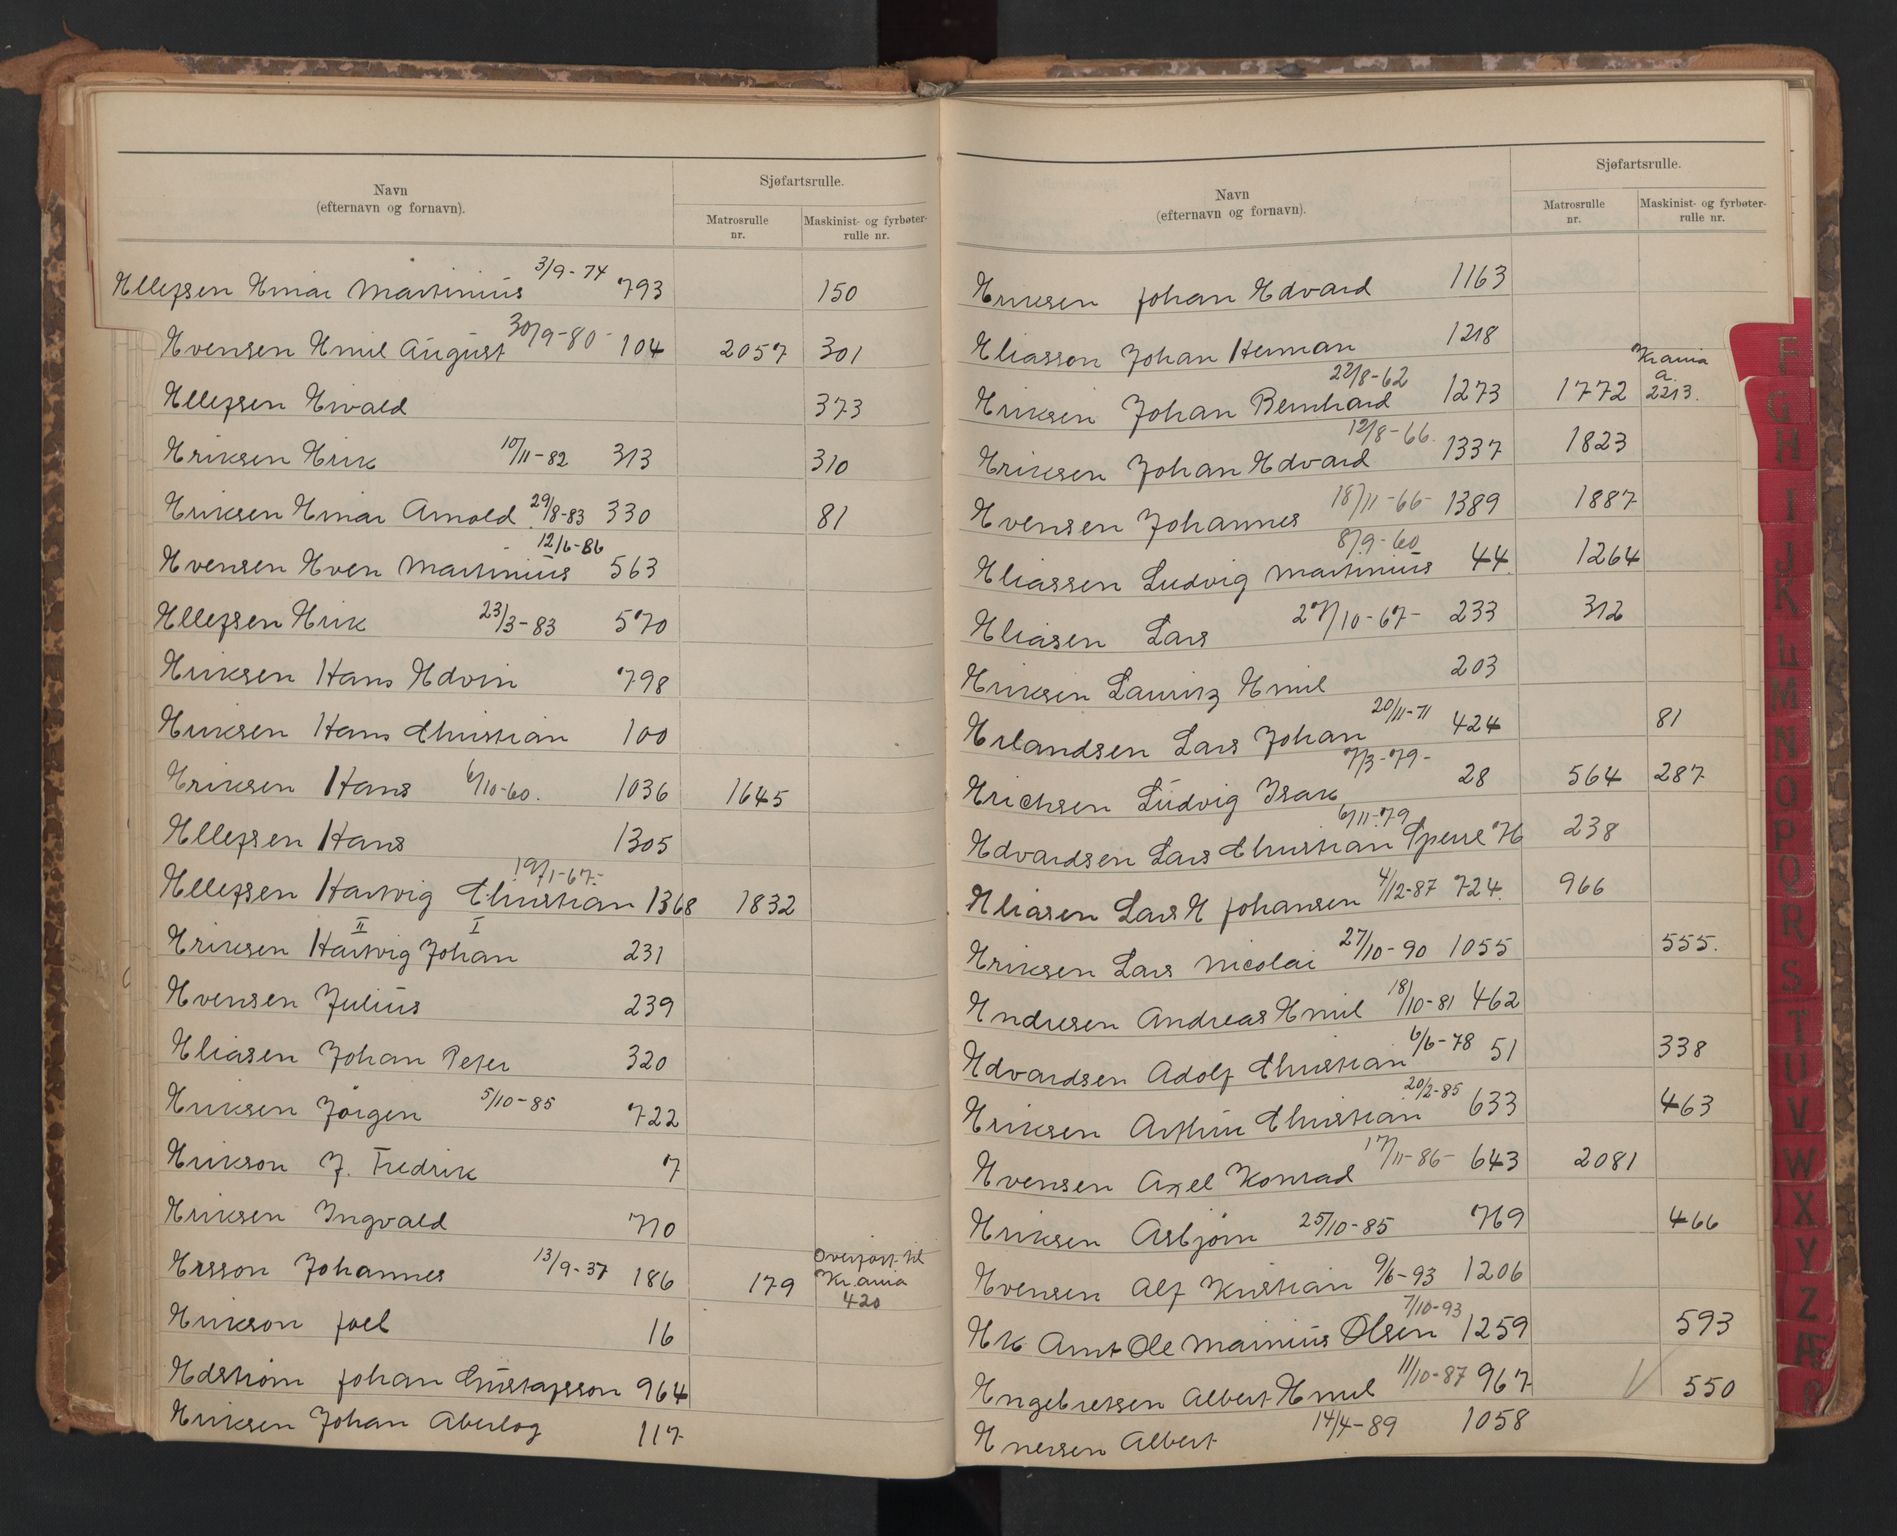 Navn
(efternavn og fornavn).
Sjøfartsrulle.
Matrosrulle nr.
Maskinist- og fyrbøter-rulle nr.
Ellefsen Einar Martinius 3/9-74 793 150
Evensen Emil August 30/9-80- 104 2057 301
Ellefsen Eivald 373
Eriksen Erik 10/11-82 313 310
Eriksen Einar Arnold 29/8-83 330 81
Evensen Even Martinius 12/6-86 563
Ellefsen Erik 23/3-83 570
Eriksen Hans Edvin 798
Eriksen Hans Christian 100
Eriksen Hans 6/10-60. 1036 1645
Ellefsen Hans 1305
Ellefsen Hartvig Christian 19/1-67- 1368 1832
Eriksen Hartvig II Johan I 231
Evensen Julius 239
Eliasen Johan Peter 320
Eriksen Jörgen 5/10-85 722
Erikson J. Fredrik 7
Eriksen Ingvald 710
Ersson Johannes 13/9-37 186 179 Overført til Kr.ania 420
Erikson Joel 16
Edström Johan Gustafsson 964
Eriksen Johan Aberlog 117
Navn
(efternavn og fornavn).
Sjøfartsrulle.
Matrosrulle nr.
Maskinist- og fyrbøter-rulle nr.
Eriksen Johan Edvard 1163
Eliasson Johan Herman 1218
Eriksen Johan Bernhard 22/8-62 1273 1772 Kr.ania a. 2213.
Eriksen Johan Edvard 12/8-66. 1337 1823
Evensen Johannes 18/11-66- 1389 1887
Eliassen Ludvig Martinius 8/9-60 44 1264
Eliasen Lars 27/10-67- 233 312
Eriksen Lauritz Emil 203
Erlandsen Lars Johan 20/11-71 424 81
Erichsen Ludvig Isak 7/3-79- 28 564 287
Edvardsen Lars Christian Sperre 6/11-79 76 238
Eliasen Lars E Johansen 4/12-87 724. 966
Eriksen Lars Nicolai 27/10-90 1055 555.
Endresen Andreas Emil 18/10-81 462
Edvardsen Adolf Christian 6/6-78 51 338
Eriksen Arthur Christian 20/2-85 633 463
Evensen Axel Konrad 17/11-86- 643 2081
Eriksen Asbjørn 25/10-85 769 466
Evensen Alf Kristian 9/6-93 1206
Ek Arnt Ole Marinius Olsen 7/10-93 1259 593
Engebretsen Albert Emil 11/10-87 967 V 550
Enersen Albert 14/4-89 1058
F
G
H
I
J
K
L
M
N
O
P
Q
R
S
T
U
V
W
X
Y
Z
Æ
Ø